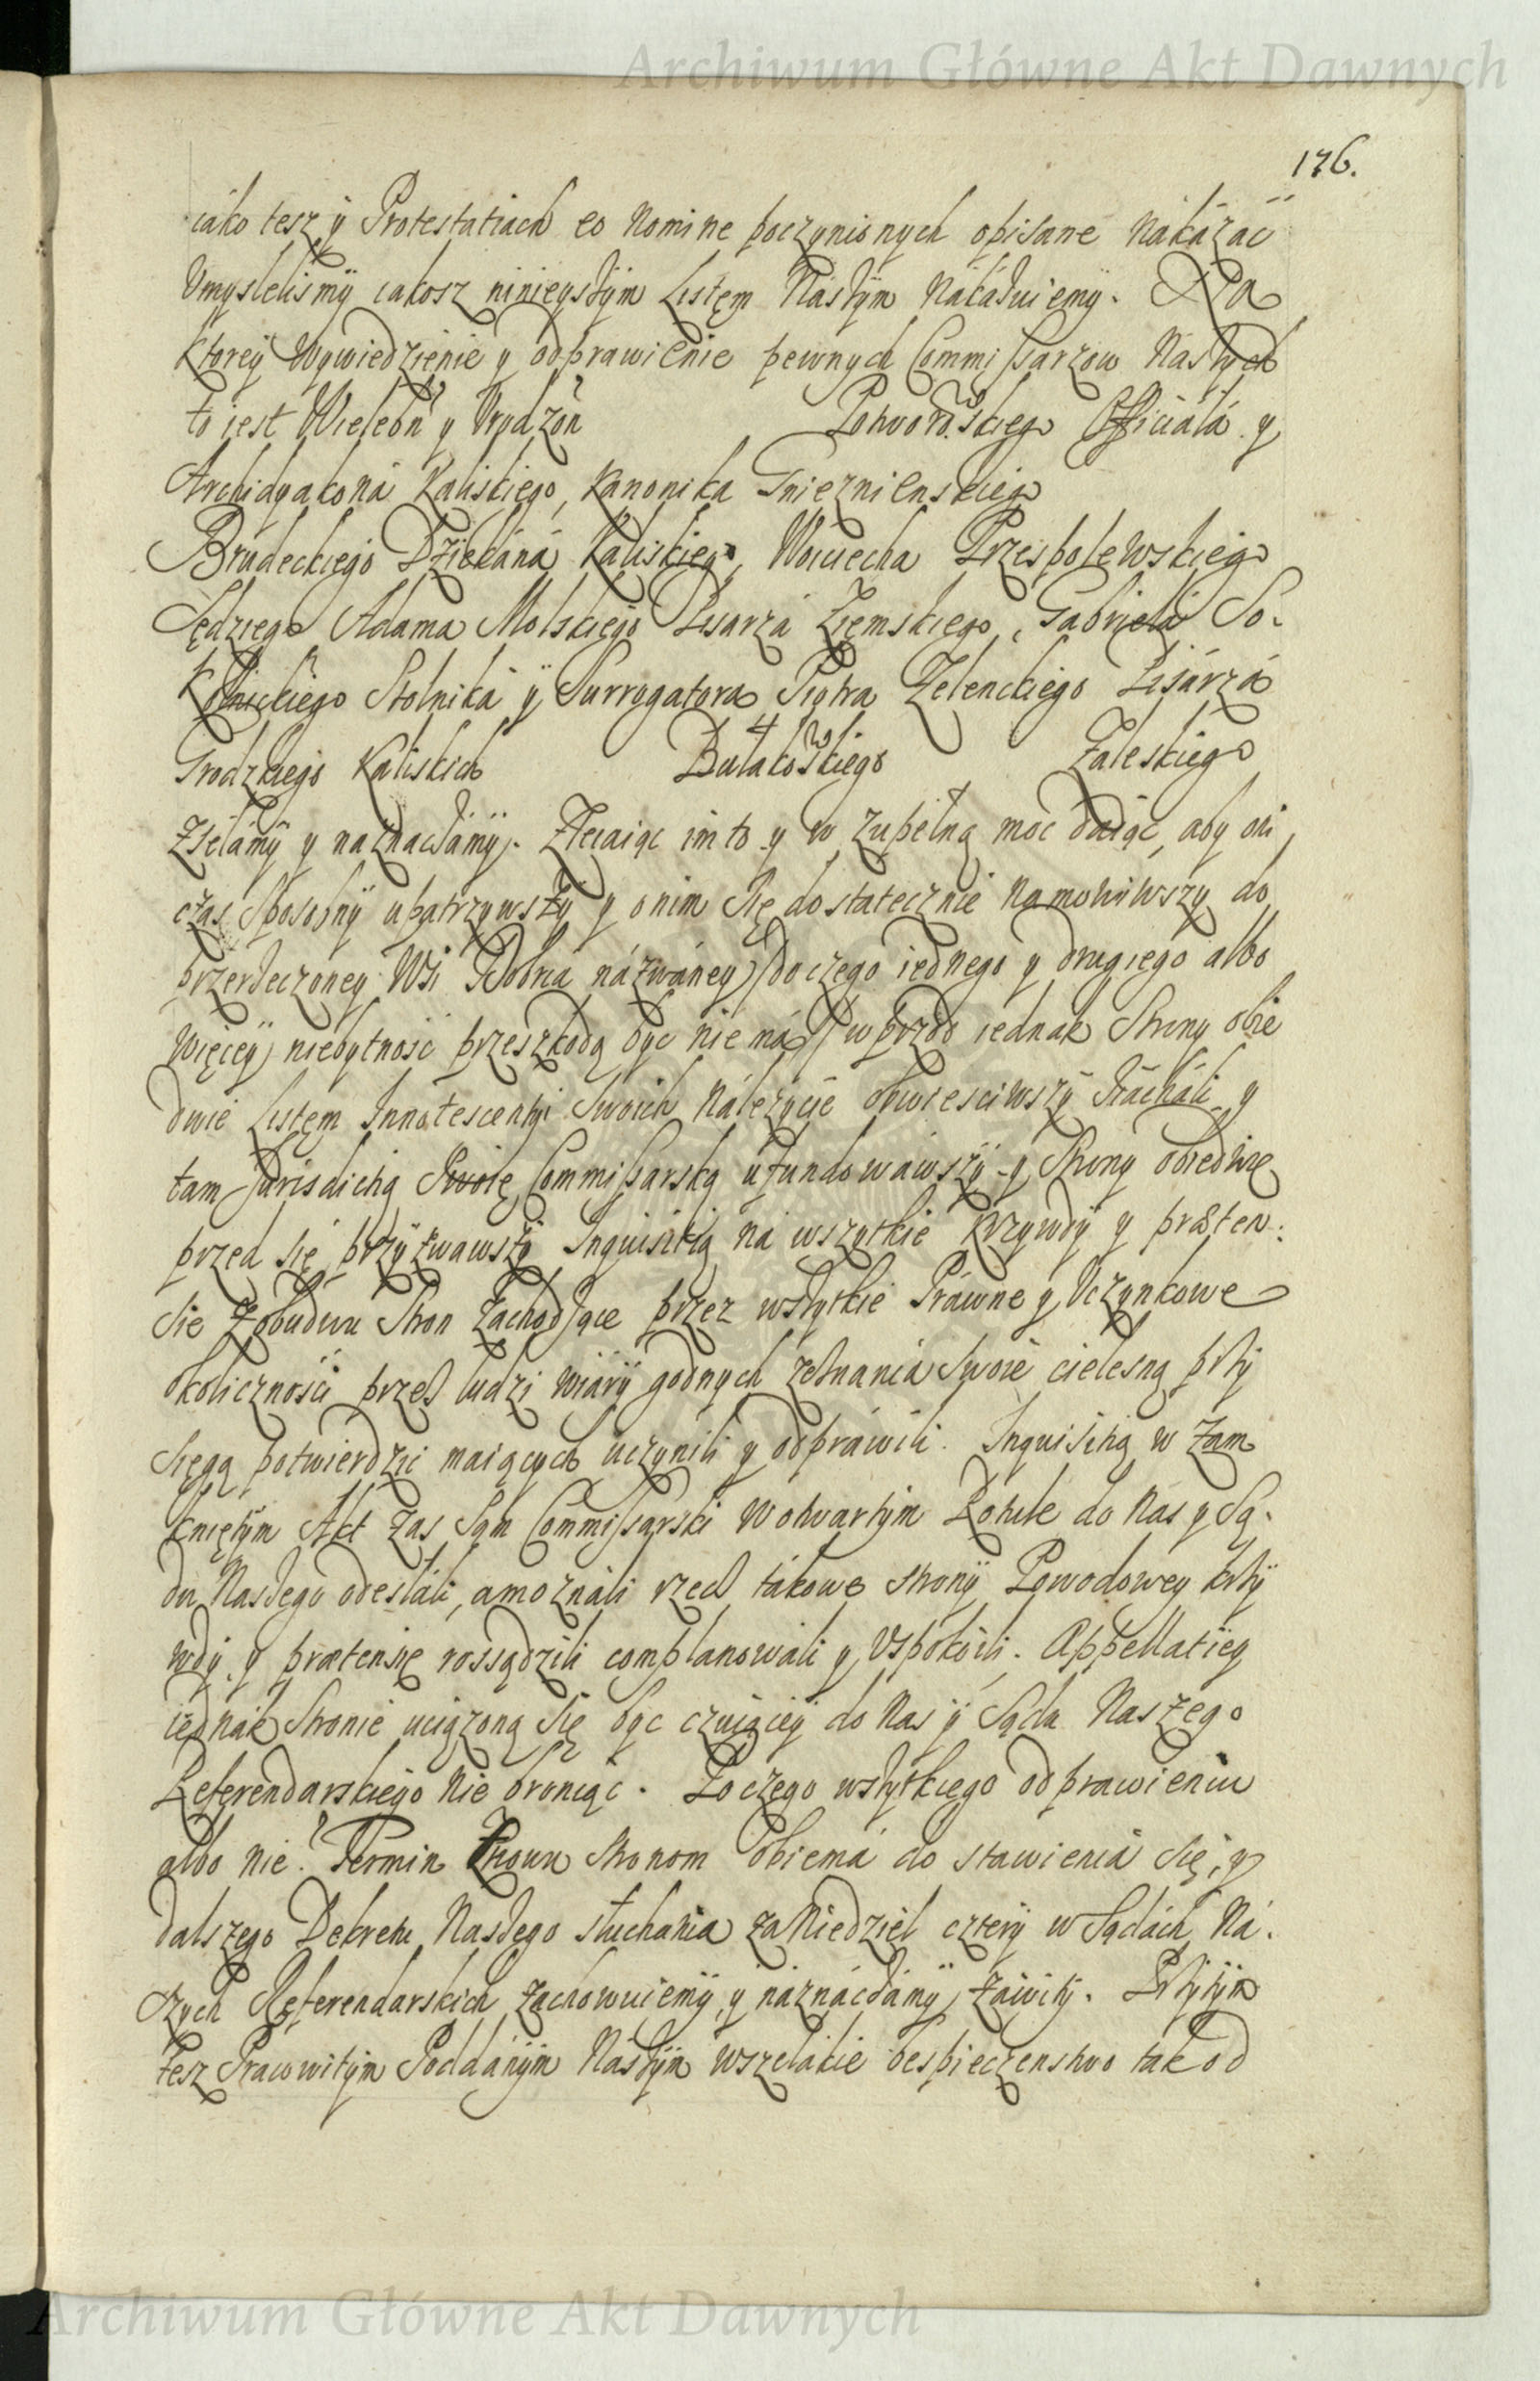 Archiwum Główne Akt Dawnych
176.
iako tesz y Protestatiach eo Nomine poczynionych opisane Nakázáć
Vmyslelismÿ iakosz ninieyszÿm Listęm Nászÿm Nákázuiemÿ. Na
Ktoreÿ Wywiedzienie y odprawienie pewnych Commissarzow Naszych
to iest Wielebn y Vrodzon Potworowskiego Officiala y
Archidyakona Kaliskiego, Kanonika Gnieznienskiego
Brudeckiego Dziekáná Kaliskiego, Woiciecha Przespolewskiego
Sędziego Adama Molskiego Pisarzá Ziemskiego, Gabriela So-
Kolnickiego Stolnika ÿ Surrogatora Piotra Zelenckiego Pisárzá
Grodzkiego Kaliskich Bułakowskiego Zaleskiego
Zsełamÿ y náznaczamÿ. Zlecaiąc im to y w zupełną moc daiąc, aby oni
czas sposobnÿ upatrzywszÿ y onim się dostatecznie Namowiwszy do
przerzeczoney Wsi Dobra názwáney (do czego iednego y drugiego albo
Więceÿ niebytność przeszkodą byc nie má) wprzod iednak Strony obie
dwie Listęm Innotescentyi Swoich Náleżycie obwiesciwszÿ Ziacháli y
tam Jurisdictią Swoię Commissarską ufundowáwszÿ y Strony obiedwie
przed się przÿzwawszÿ Inquisitią ná wszytkie Krzywdÿ y præten-
sie z obudwu Stron Zachodzące przez wszytkie Prawne y Vczynkowe
okoliczności przez ludzi wiárÿ godnych zeznania Swoie cielesną przy
sięgą potwierdzić maiących uczynili y odpráwili. Inquisitią w Zam
knięthÿm Akt Zas Sąm Commissarski w otwartÿm Rotule do Nas y Są-
du Naszego odesłali, a moznali rzecz tákowe stronÿ Powodowey krzÿ
wdÿ y prætensie rossądzili complanowali y Vspokoili. Appellatiey
iednák Stronie uciązoną Się byc czuiąceÿ do Nas ÿ Sądu Naszego
Referendarskiego Nie broniąc. Po czego wszÿtkiego odprawieniu
albo nie? Termin Znowu Stronom obiemá do stawieniá Się, y
dalszego Dekretu Naszego słuchania zaNiedziel czterÿ w Sądách Ná-
szych Referendarskich Záchowuiemÿ, y náznáczámÿ Záwitÿ. Przytÿm
tesz Pracowitÿm Poddánÿm Nászÿm wszelákie bespieczenstwo tak od
Archiwum Główne Akt Dawnych